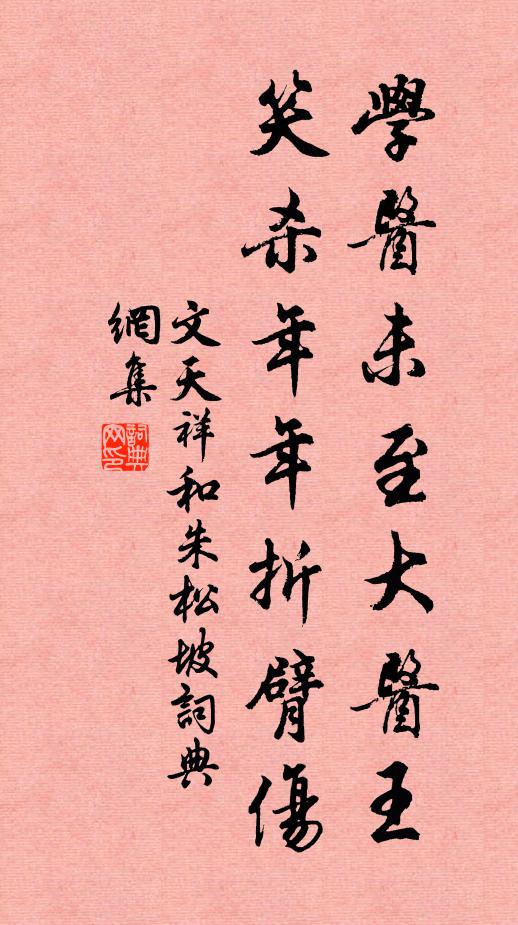 學醫未至大醫王
笑杀年年折臂傷
文天祥和朱松坡詞典
網集
詞典
网印